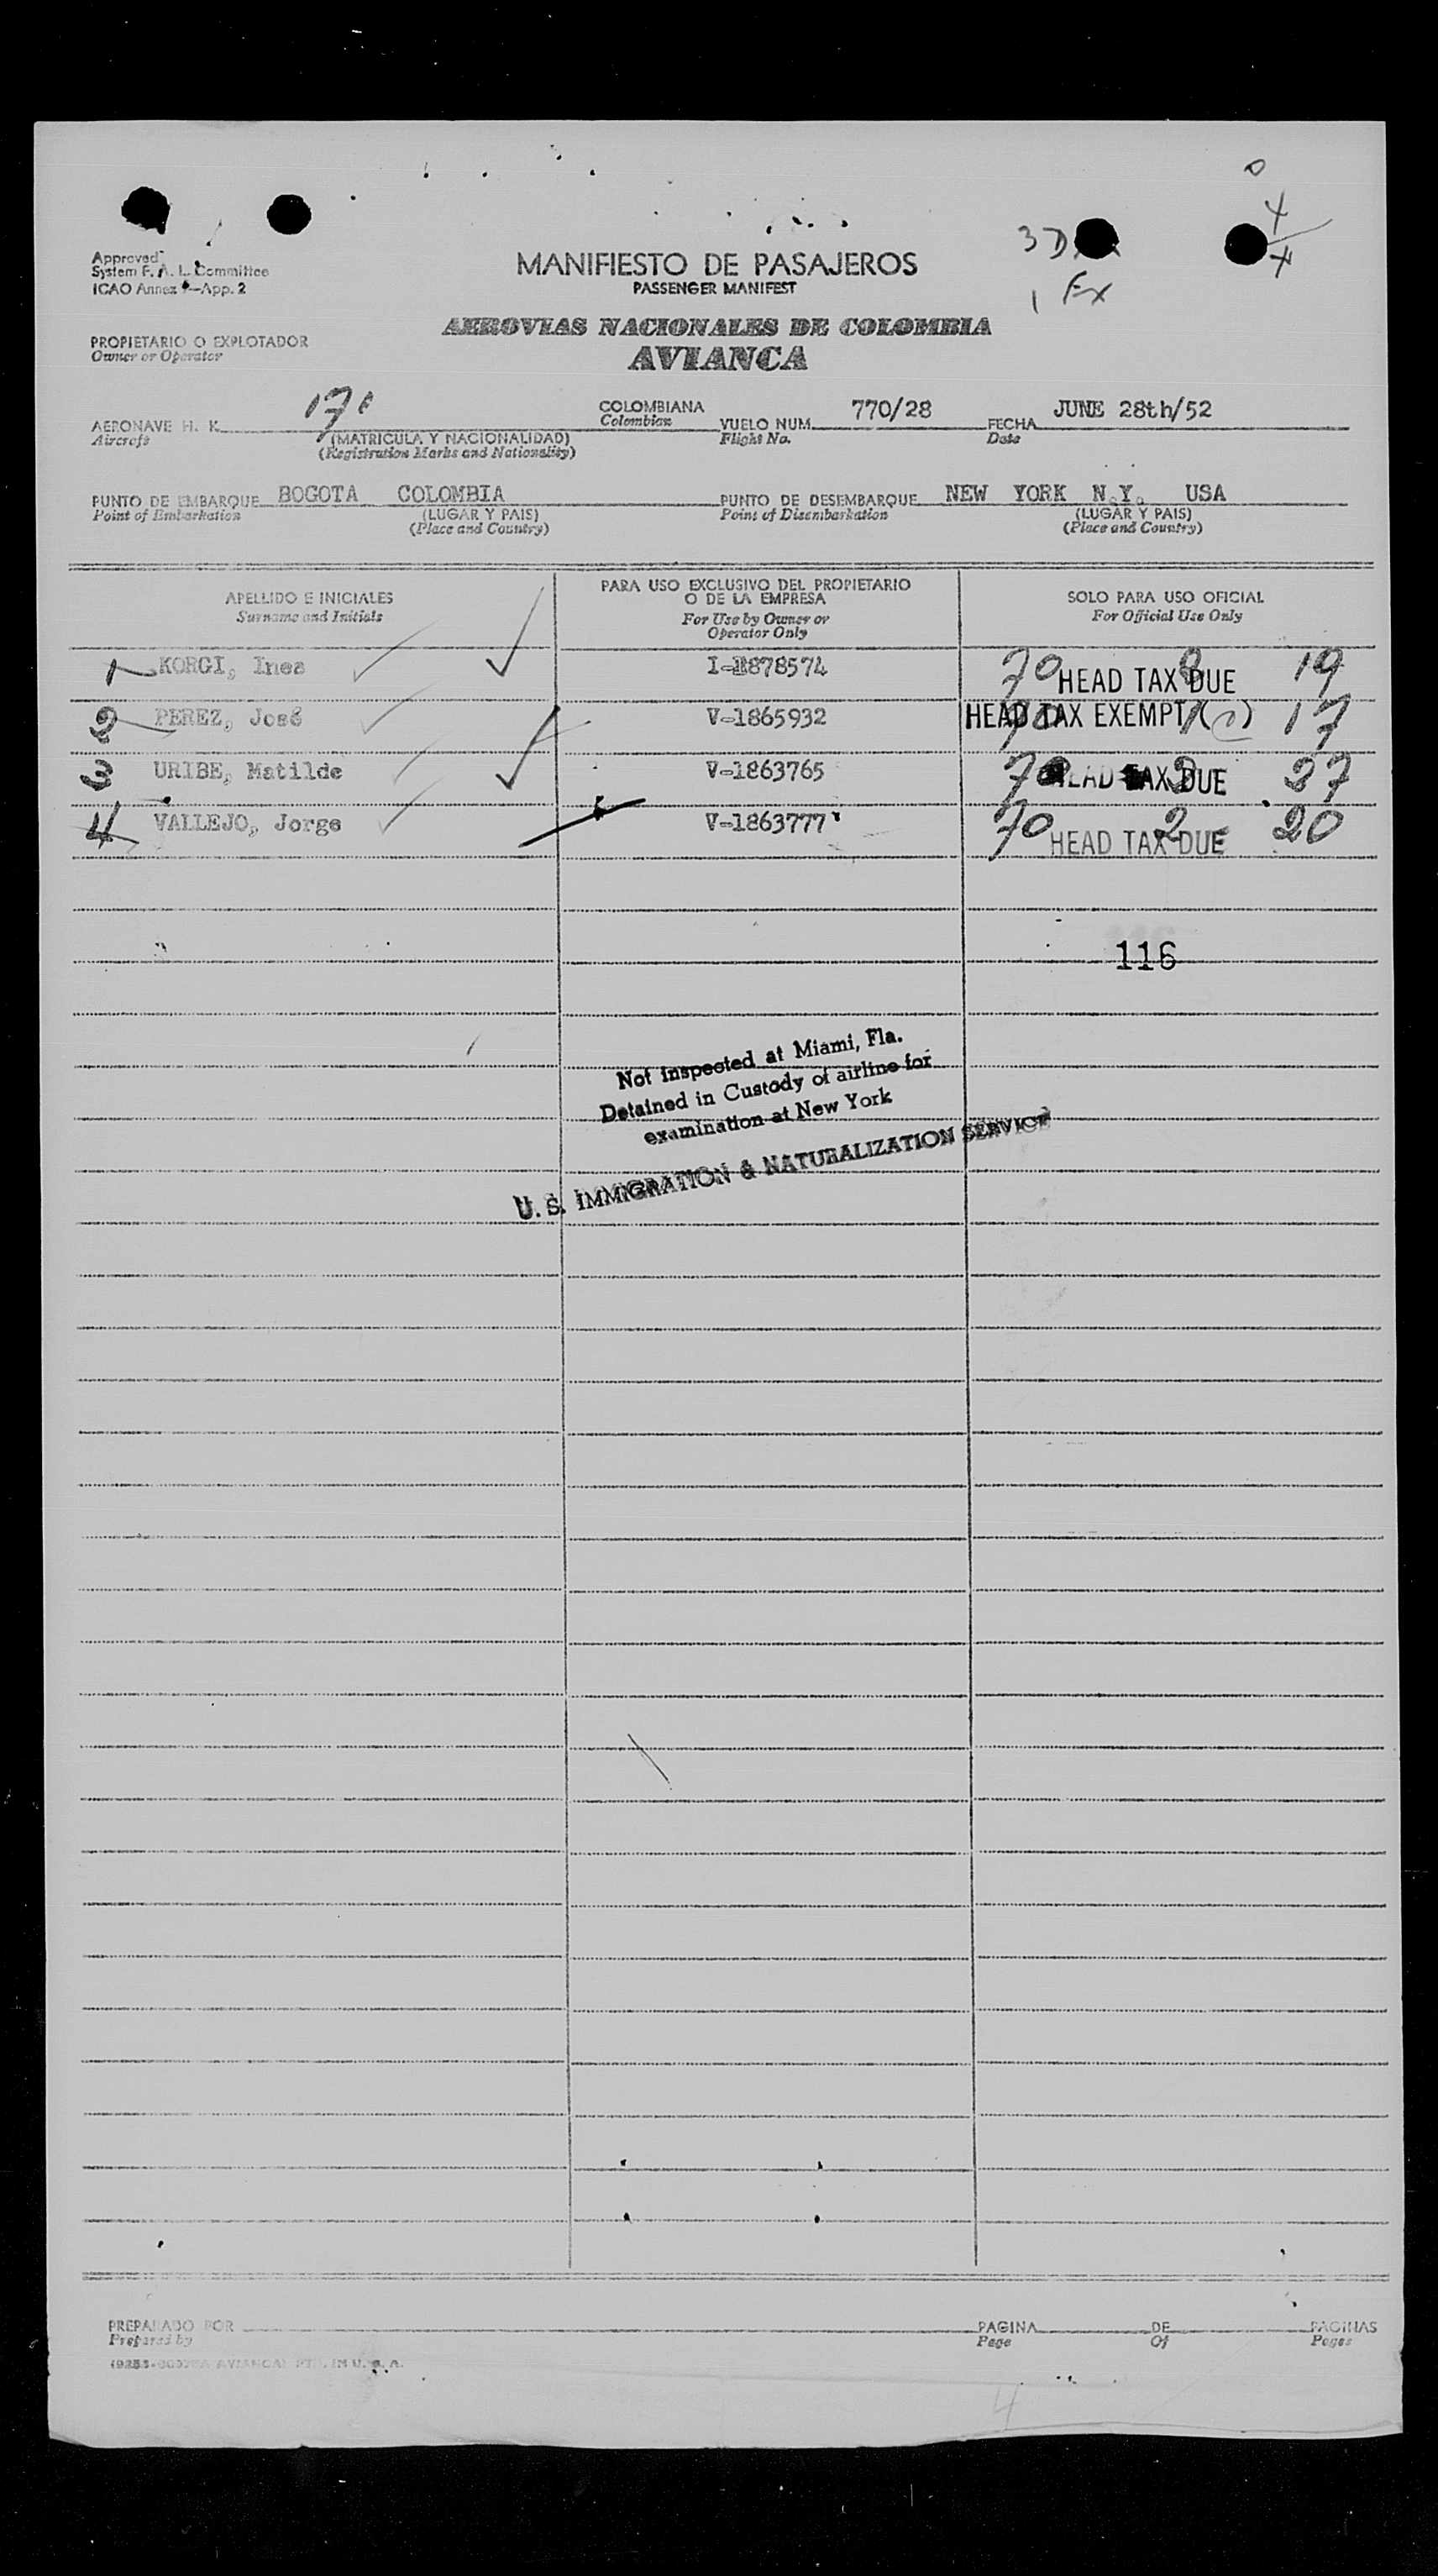 3 D
4
4
1 Ex
Approved
System F. A. L. Committee
ICAO Annex —App. 2
MANIFIESTO DE PASAJEROS
PASSENGER MANIFEST
AEROVIAS NACIONALES DE COLOMBIA
AVIANCA
PROPIETARIO O EXPLOTADOR
Owner or Operator
AERONAVE H. K. COLOMBIANA VUELO NUM. 770/28 FECHA JUNE 28th/52
Aircraft (MATRICULA Y NACIONALIDAD) Colombian Flight No. Date
(Registration Marks and Nationality)
PUNTO DE EMBARQUE BOGOTA COLOMBIA PUNTO DE DESEMBARQUE NEW YORK N.Y. USA
Point of Embarkation (LUGAR Y PAIS) Point of Disembarkation (LUGAR Y PAIS)
(Place and Country) (Place and Country)
APELLIDO E INICIALES PARA USO EXCLUSIVO DEL PROPIETARIO O DE LA EMPRESA SOLO PARA USO OFICIAL
Surname and Initials For Use by Owner or Operator Only For Official Use Only
1 KORGI, Ines I-878574 70 HEAD TAX DUE 19
2 PEREZ, José V-1865932 HEAD TAX EXEMPT 17
3 URIBE, Matilde V-1863765 70 HEAD TAX DUE 27
4 VALLEJO, Jorge V-1863777 70 2 HEAD TAX DUE 20
116
Not inspected at Miami, Fla.
Detained in Custody of airline for
examination at New York
U. S. IMMIGRATION & NATURALIZATION SERVICE
PREPARADO POR PAGINA DE PAGINAS
Prepared by Page Of Pages
AVIANCA) PTD. IN U. S. A.
4